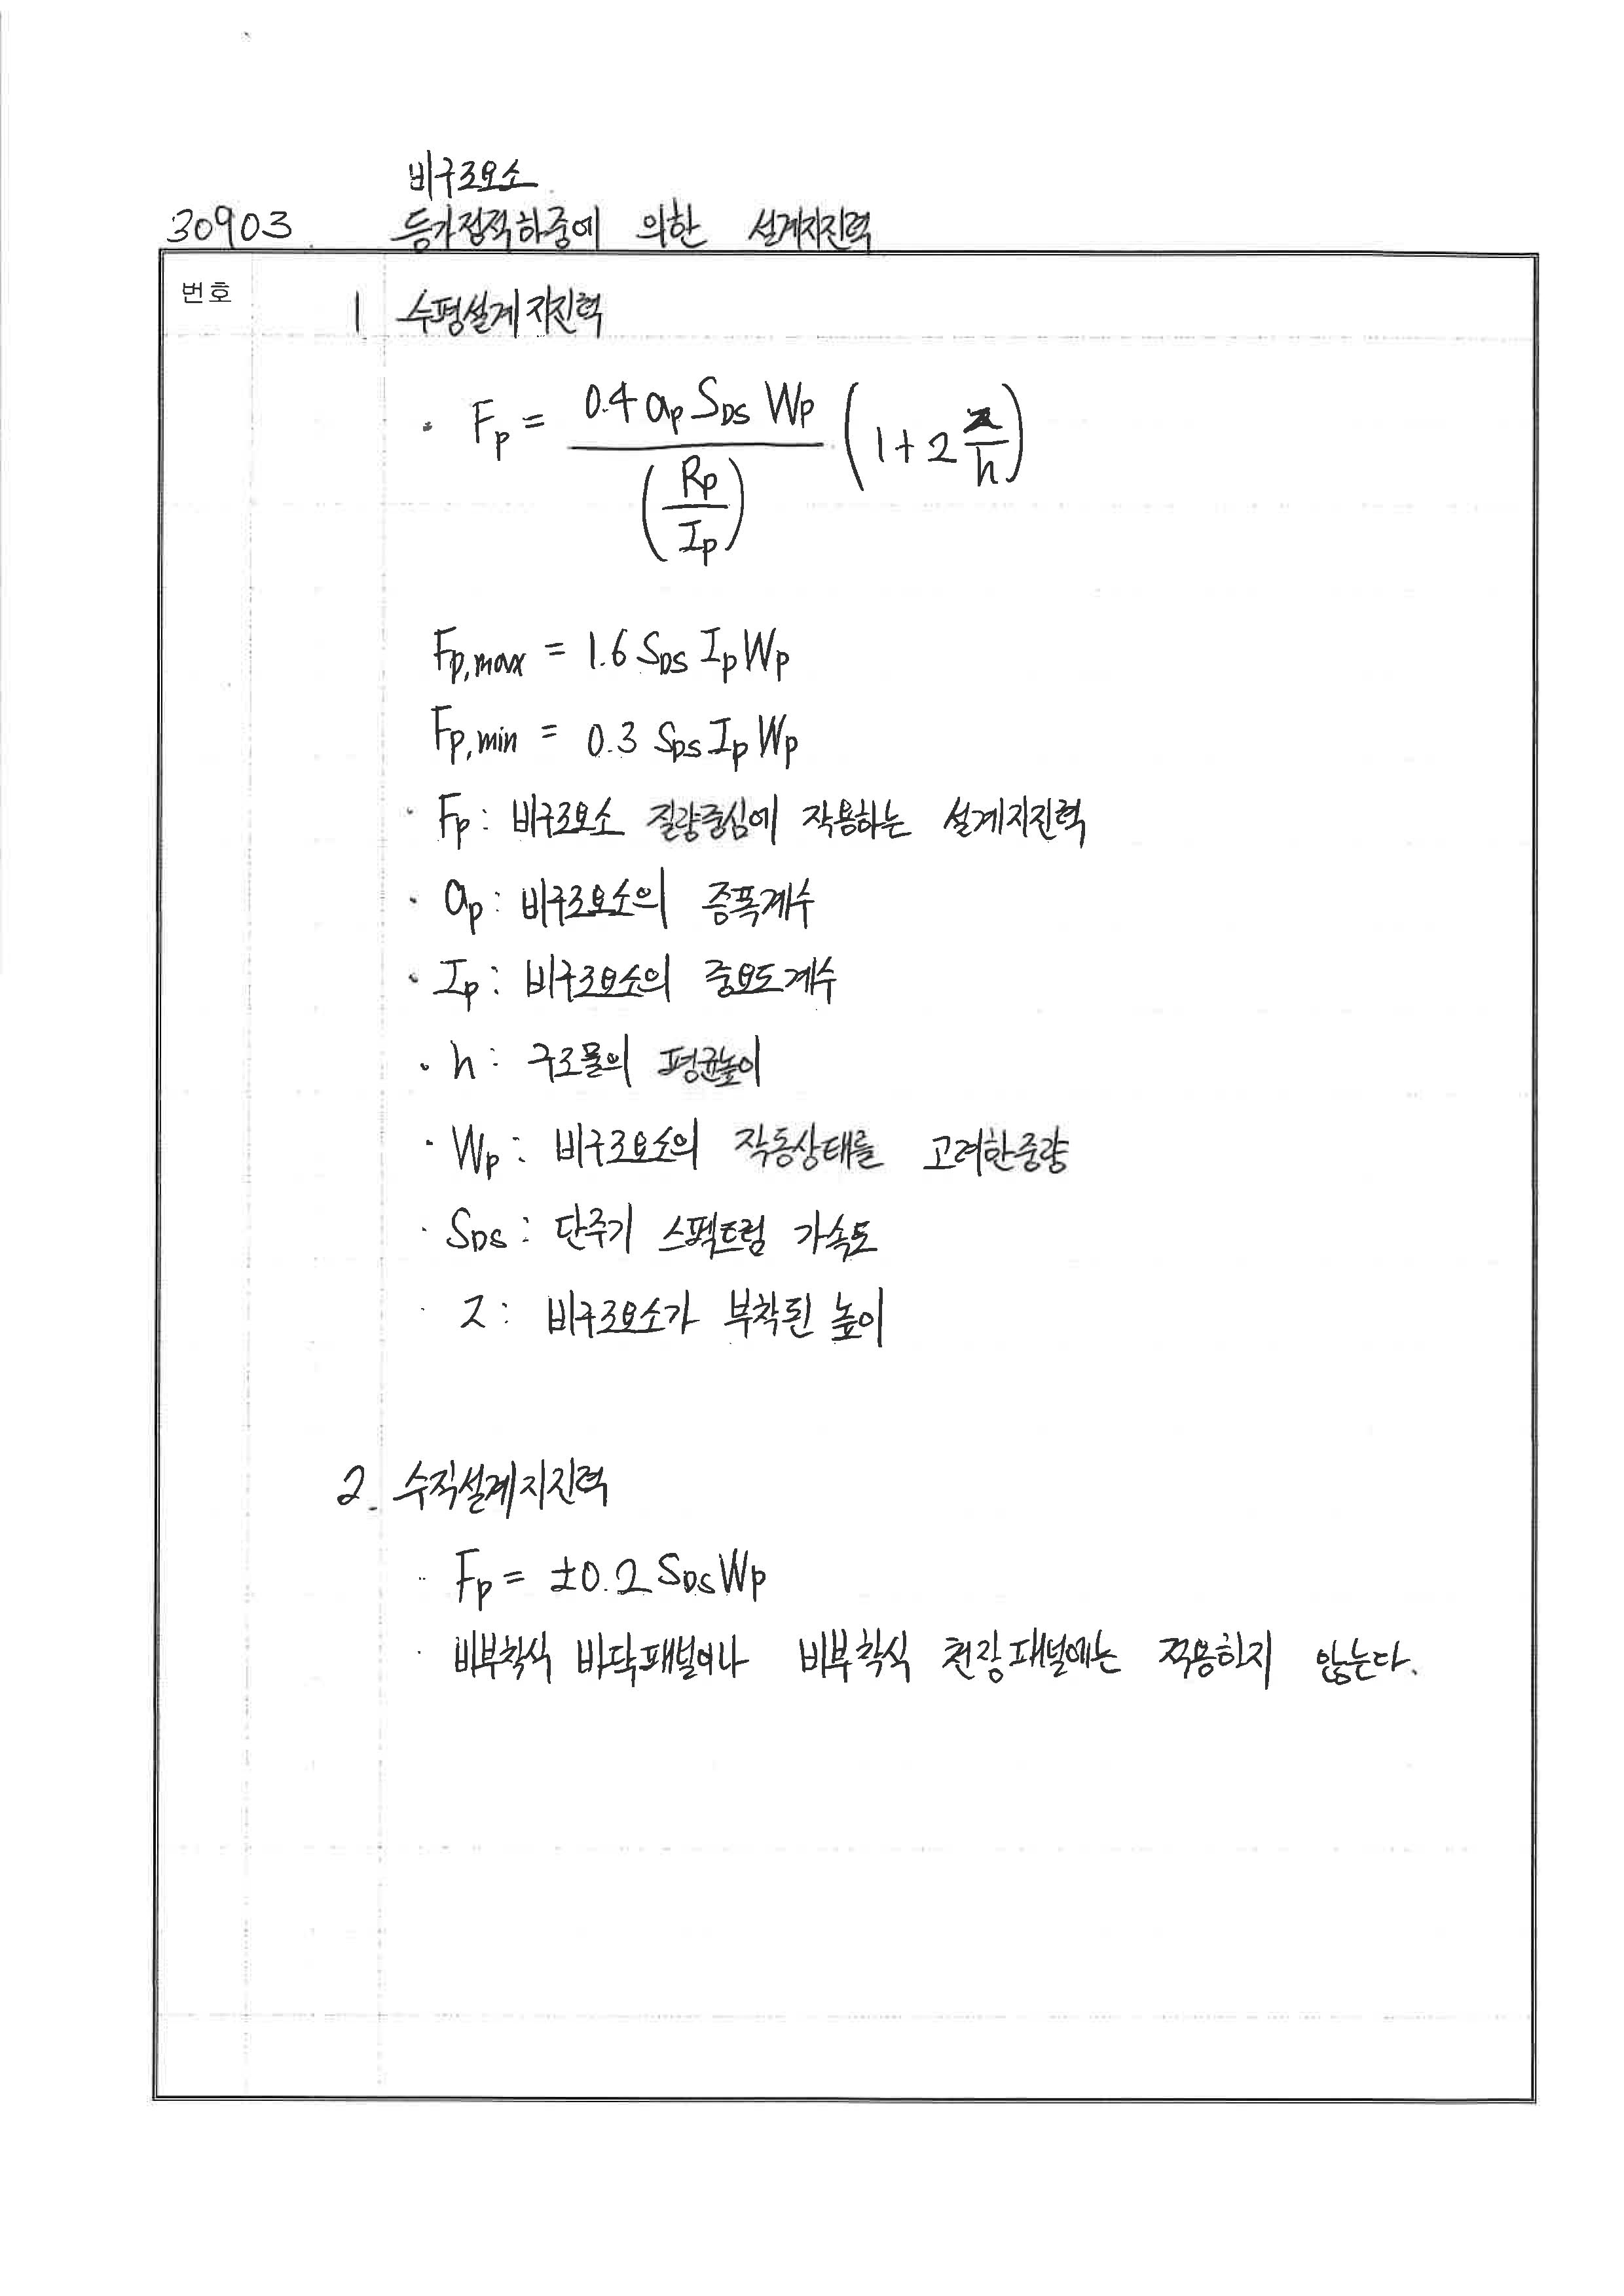 비구조요소
30903. 등가정적하중에 의한 설계지진력
번호
1 수평설계지진력
· Fp = 0.4 ap SDS Wp / (Rp / Ip) (1 + 2 z/h)
Fp,max = 1.6 SDS Ip Wp
Fp,min = 0.3 SDS Ip Wp
· Fp : 비구조요소 질량중심에 작용하는 설계지진력
· ap : 비구조요소의 증폭계수
· Ip : 비구조요소의 중요도계수
· h : 구조물의 평균높이
· Wp : 비구조요소의 작동상태를 고려한중량
· SDS : 단주기 스펙트럼 가속도
· z : 비구조요소가 부착된 높이
2. 수직설계지진력
· Fp = ±0.2 SDS Wp
· 비부착식 바닥패널이나 비부착식 천장패널에는 적용하지 않는다.